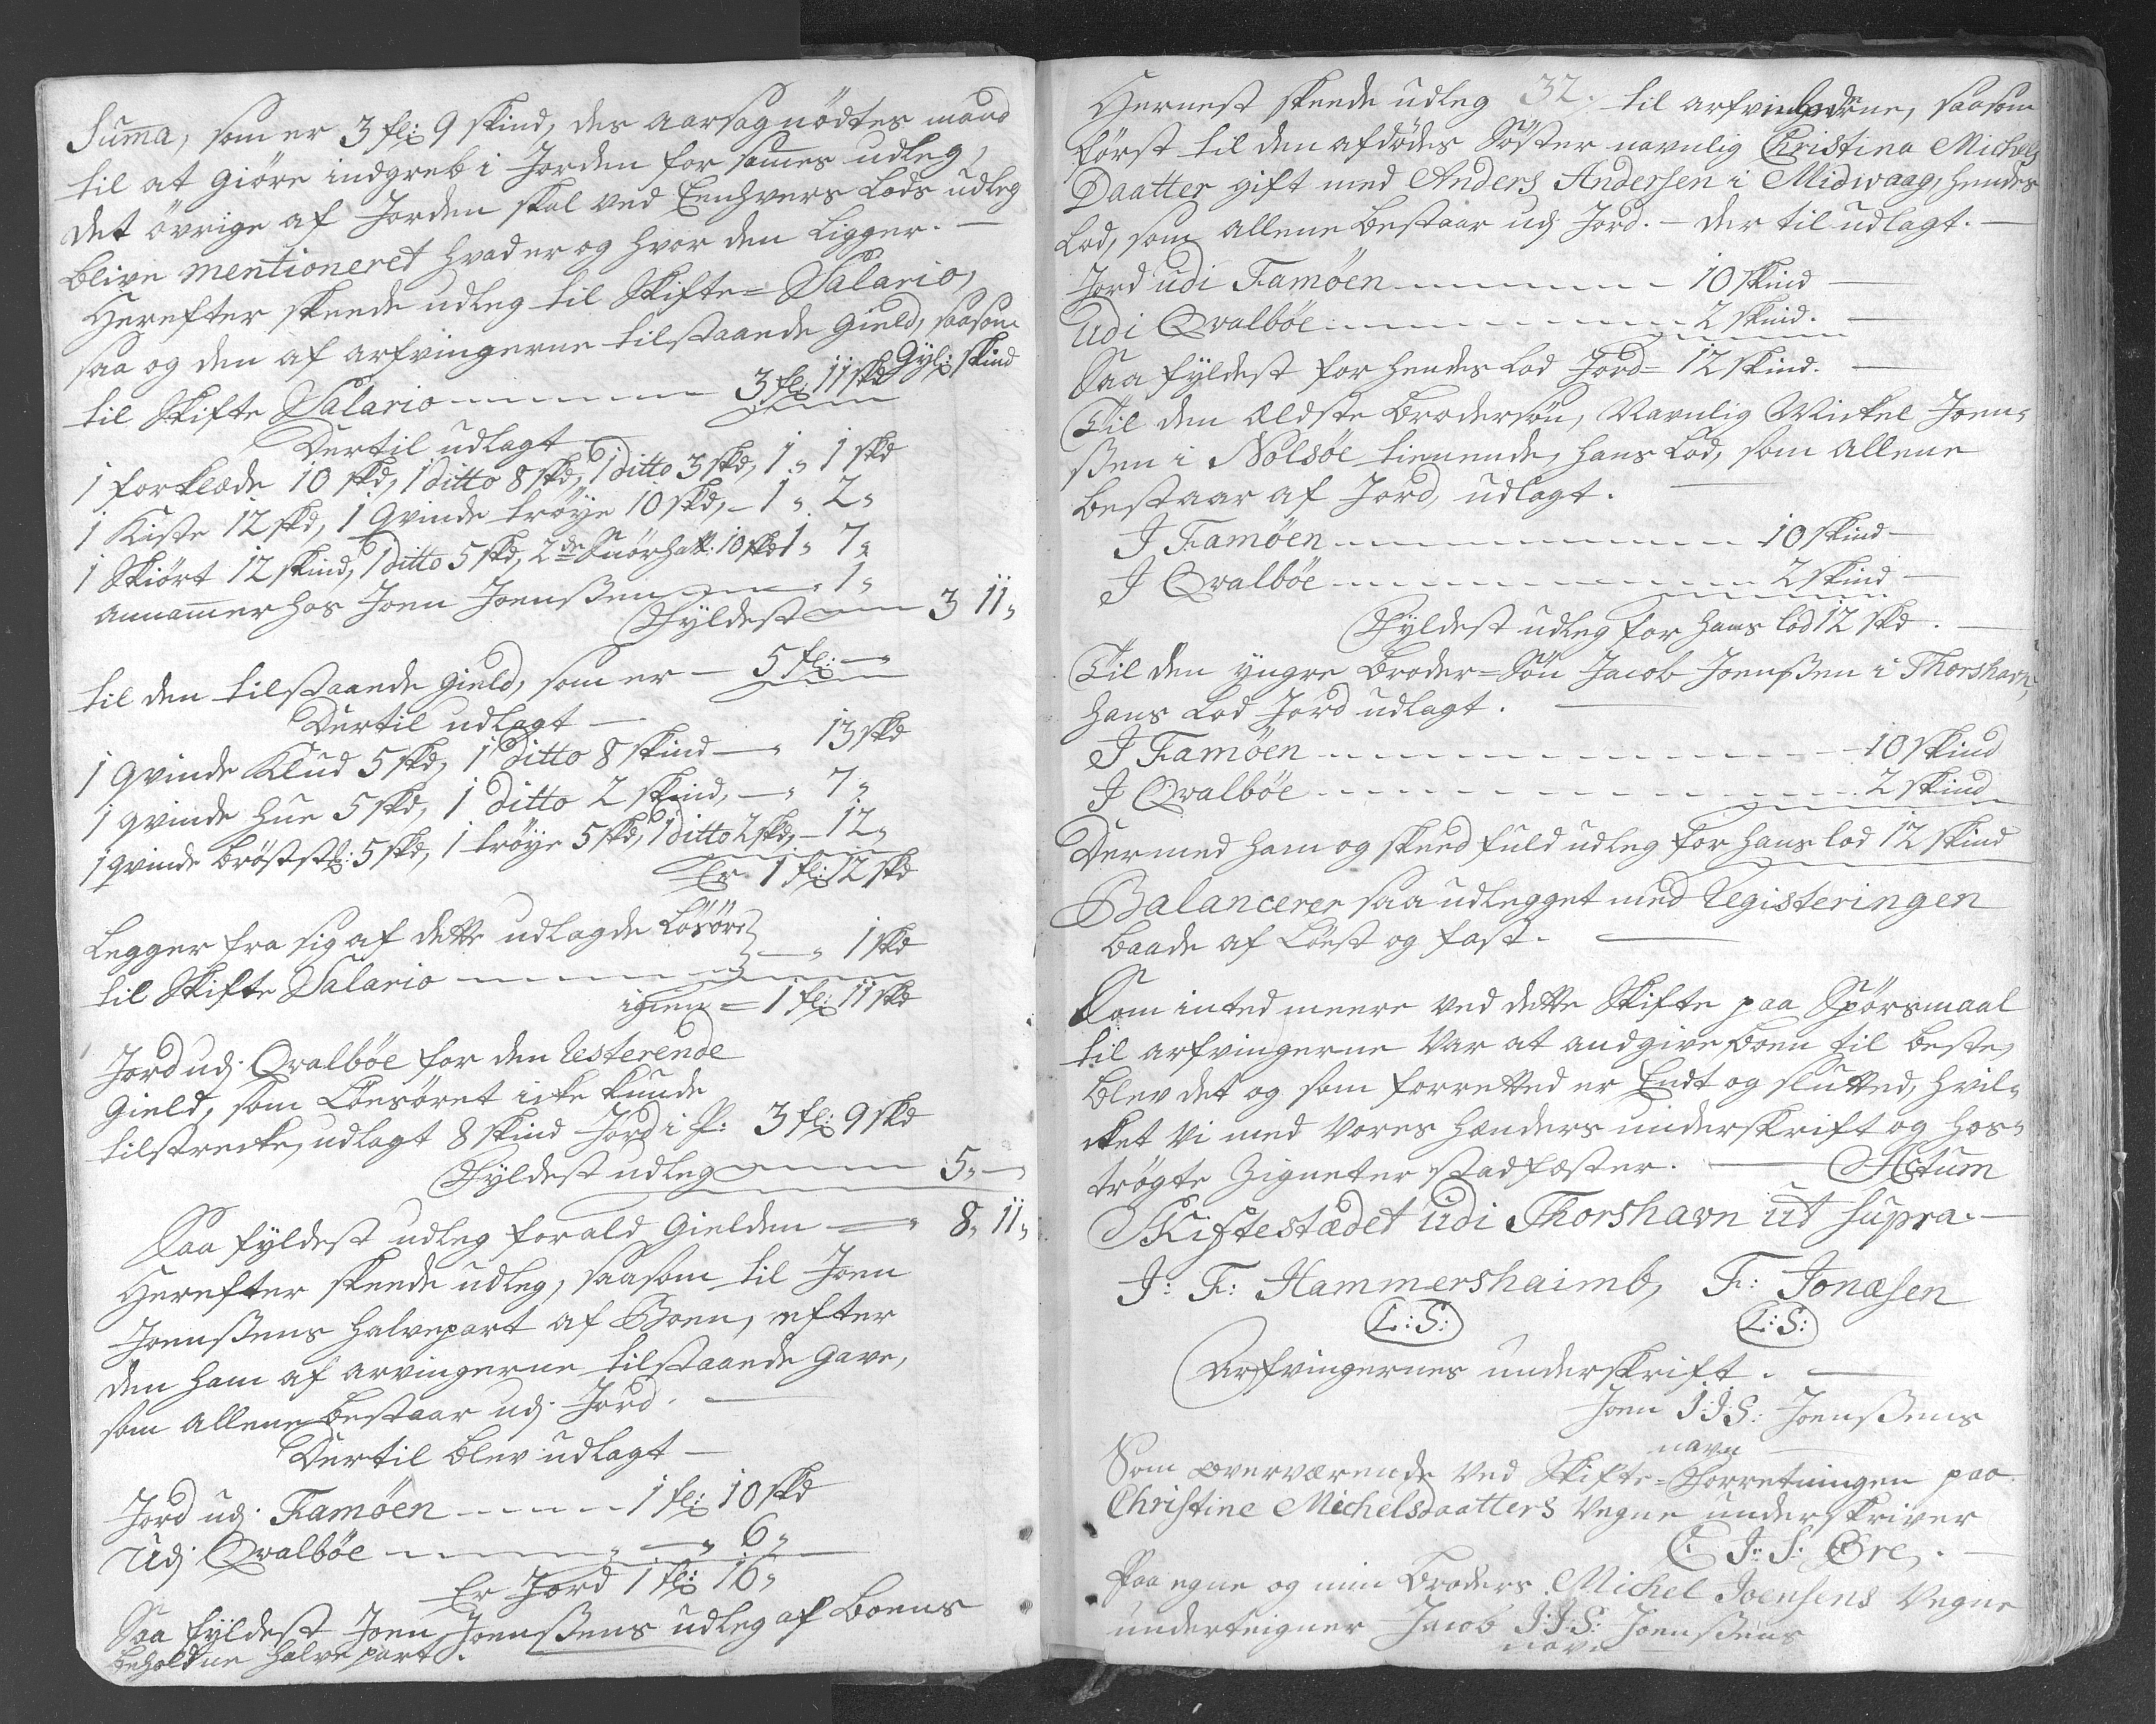 Summa, som er 3 fl: 9 skind, des aarsag nödtes mand
til at giöre indgreb i Jorden for sames udleg,
det övrige af Jorden skal ved Eenhvers Lods udleg
blive mentioneret hvad er og hvor den Ligger. —
Herefter skeede udleg til Skifte= Salario,
saa og den af arfvingerne tilstaaende gield, saasom
til Skifte Salario — 3 fl: 11 skd Gyl: skind
Dertil udlagt —
1 forklæde 10 skd, 1 ditto 8 skd, 1 ditto 3 skd, 1 „ 1 skd
1 Kiste 12 skd, 1 Qvinde tröye 10 skd, — 1 „ 2 „
1 Skiört 12 skind, 1 ditto 5 skd, 2de Snörhatt: 10 skd 1 „ 7 „
annammer hos Joen Joenßen — 1 „
Fyldest — 3 11 „
til den tilstaaende gield, som er — 5 fl: — „
Dertil udlagt —
1 qvinde Klud 5 skd, 1 ditto 8 skind — „ 13 skd
1 qvinde Hue 5 skd, 1 ditto 2 skind, — „ 7 „
1 qvinde bröstst: 5 skd, 1 tröye 5 skd, 1 ditto 2 skd, — 12 „
Er 1 fl: 12 skd
Legger fra sig af dette udlagde Lösöre
til Skifte Salario — „ 1 skd
igien = 1 fl: 11 skd
Jord udj Qvalböe for den Resterende
Gield, som Lönsöret icke kunde
tilstrecke, udlagt 8 skind Jord i P: 3 fl: 9 skd
Fyldest udleg — 5 „ —
Saa fyldest udleg for ald Gielden — „ 8 „ 11 „
Herefter skeede udleg, saasom til Joen
Joenßens halvepart af Boen, efter
den ham af arvingerne tilstaaende Gave,
som allene bestaar udj Jord. —
Dertil blev udlagt —
Jord udj Famöen — 1 fl: 10 skd
Udj Qvalböe — „ 6 „
Er Jord 1 fl: 16 „
Saa fyldest Joen Joenßens udleg af boens
beholdne halve part.
32.
Hernest skeede udleg til arfvingerne, saasom
först til den afdödes Söster navnlig Christina Michels
Daatter gift med Anders Andersen i Midwaag, hendes
Lod, som allene bestaar udj Jord. — der til udlagt. —
Jord udi Famöen — 10 skind —
Udi Qvalböe — 2 skind. —
Saa fyldest for hendes Lod Jord= 12 skind. —
Til den Ældste brodersön, Navnlig Mickel Joen-
ßen i Nolsöe tienende, hans Lod, som allene
bestaar af Jord, udlagt. —
I Famöen — 10 skind —
I Qvalböe — 2 skind —
Fyldest udleg for hans lod 12 skd. —
Til den yngre broder=Sön Jacob Joenßen i Thorshavn,
hans Lod Jord udlagt. —
I Famöen — 10 skind
I Qvalböe — 2 skind
Dermed ham og skeed fuld udleg for hans lod 12 skind
Balancerer saa udlegget med Registeringen
baade af Löest og fast. —
Som inted meere ved dette Skifte paa Spörsmaal
til arfvingerne var at andgive boen til beste,
blev det og som forretted er Endt og slutted, hvil-
cket vi med vores hænders underskrift og hos-
trögte Zigneter stadfæster. — Actum
Skiftestædet udi Thorshavn ut supra. —
J: F: Hammershaimb, F: Jonæsen
(L:S:) (L:S:)
Arfvingernes underskrift. —
Joen J:J:S: Joenßens
navn
Som overværende ved Skifte=Forretningen paa
Christine Michelsdaatters Vegne underskriver
C: J: S: Öre. —
Paa egne og min broders Michel Joensens Vegne
underteigner Jacob J:J:S: Joenßens
navn